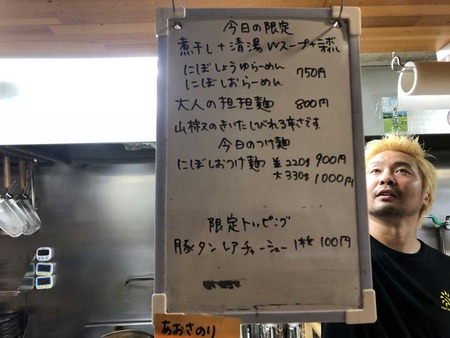 今日の限定
煮干し+清湯Wスープ+
にぼしょうゆらーめん
にぼしおらーめん
750円
大人の担担麺 800円
山椒のきいたしびれる辛さです。
今日のつけ麺
にぼしおつけ麺 並220g 900円
大330g 1000円
限定トッピング
豚タンレアチャーシュー 1枚100円
あおさのり